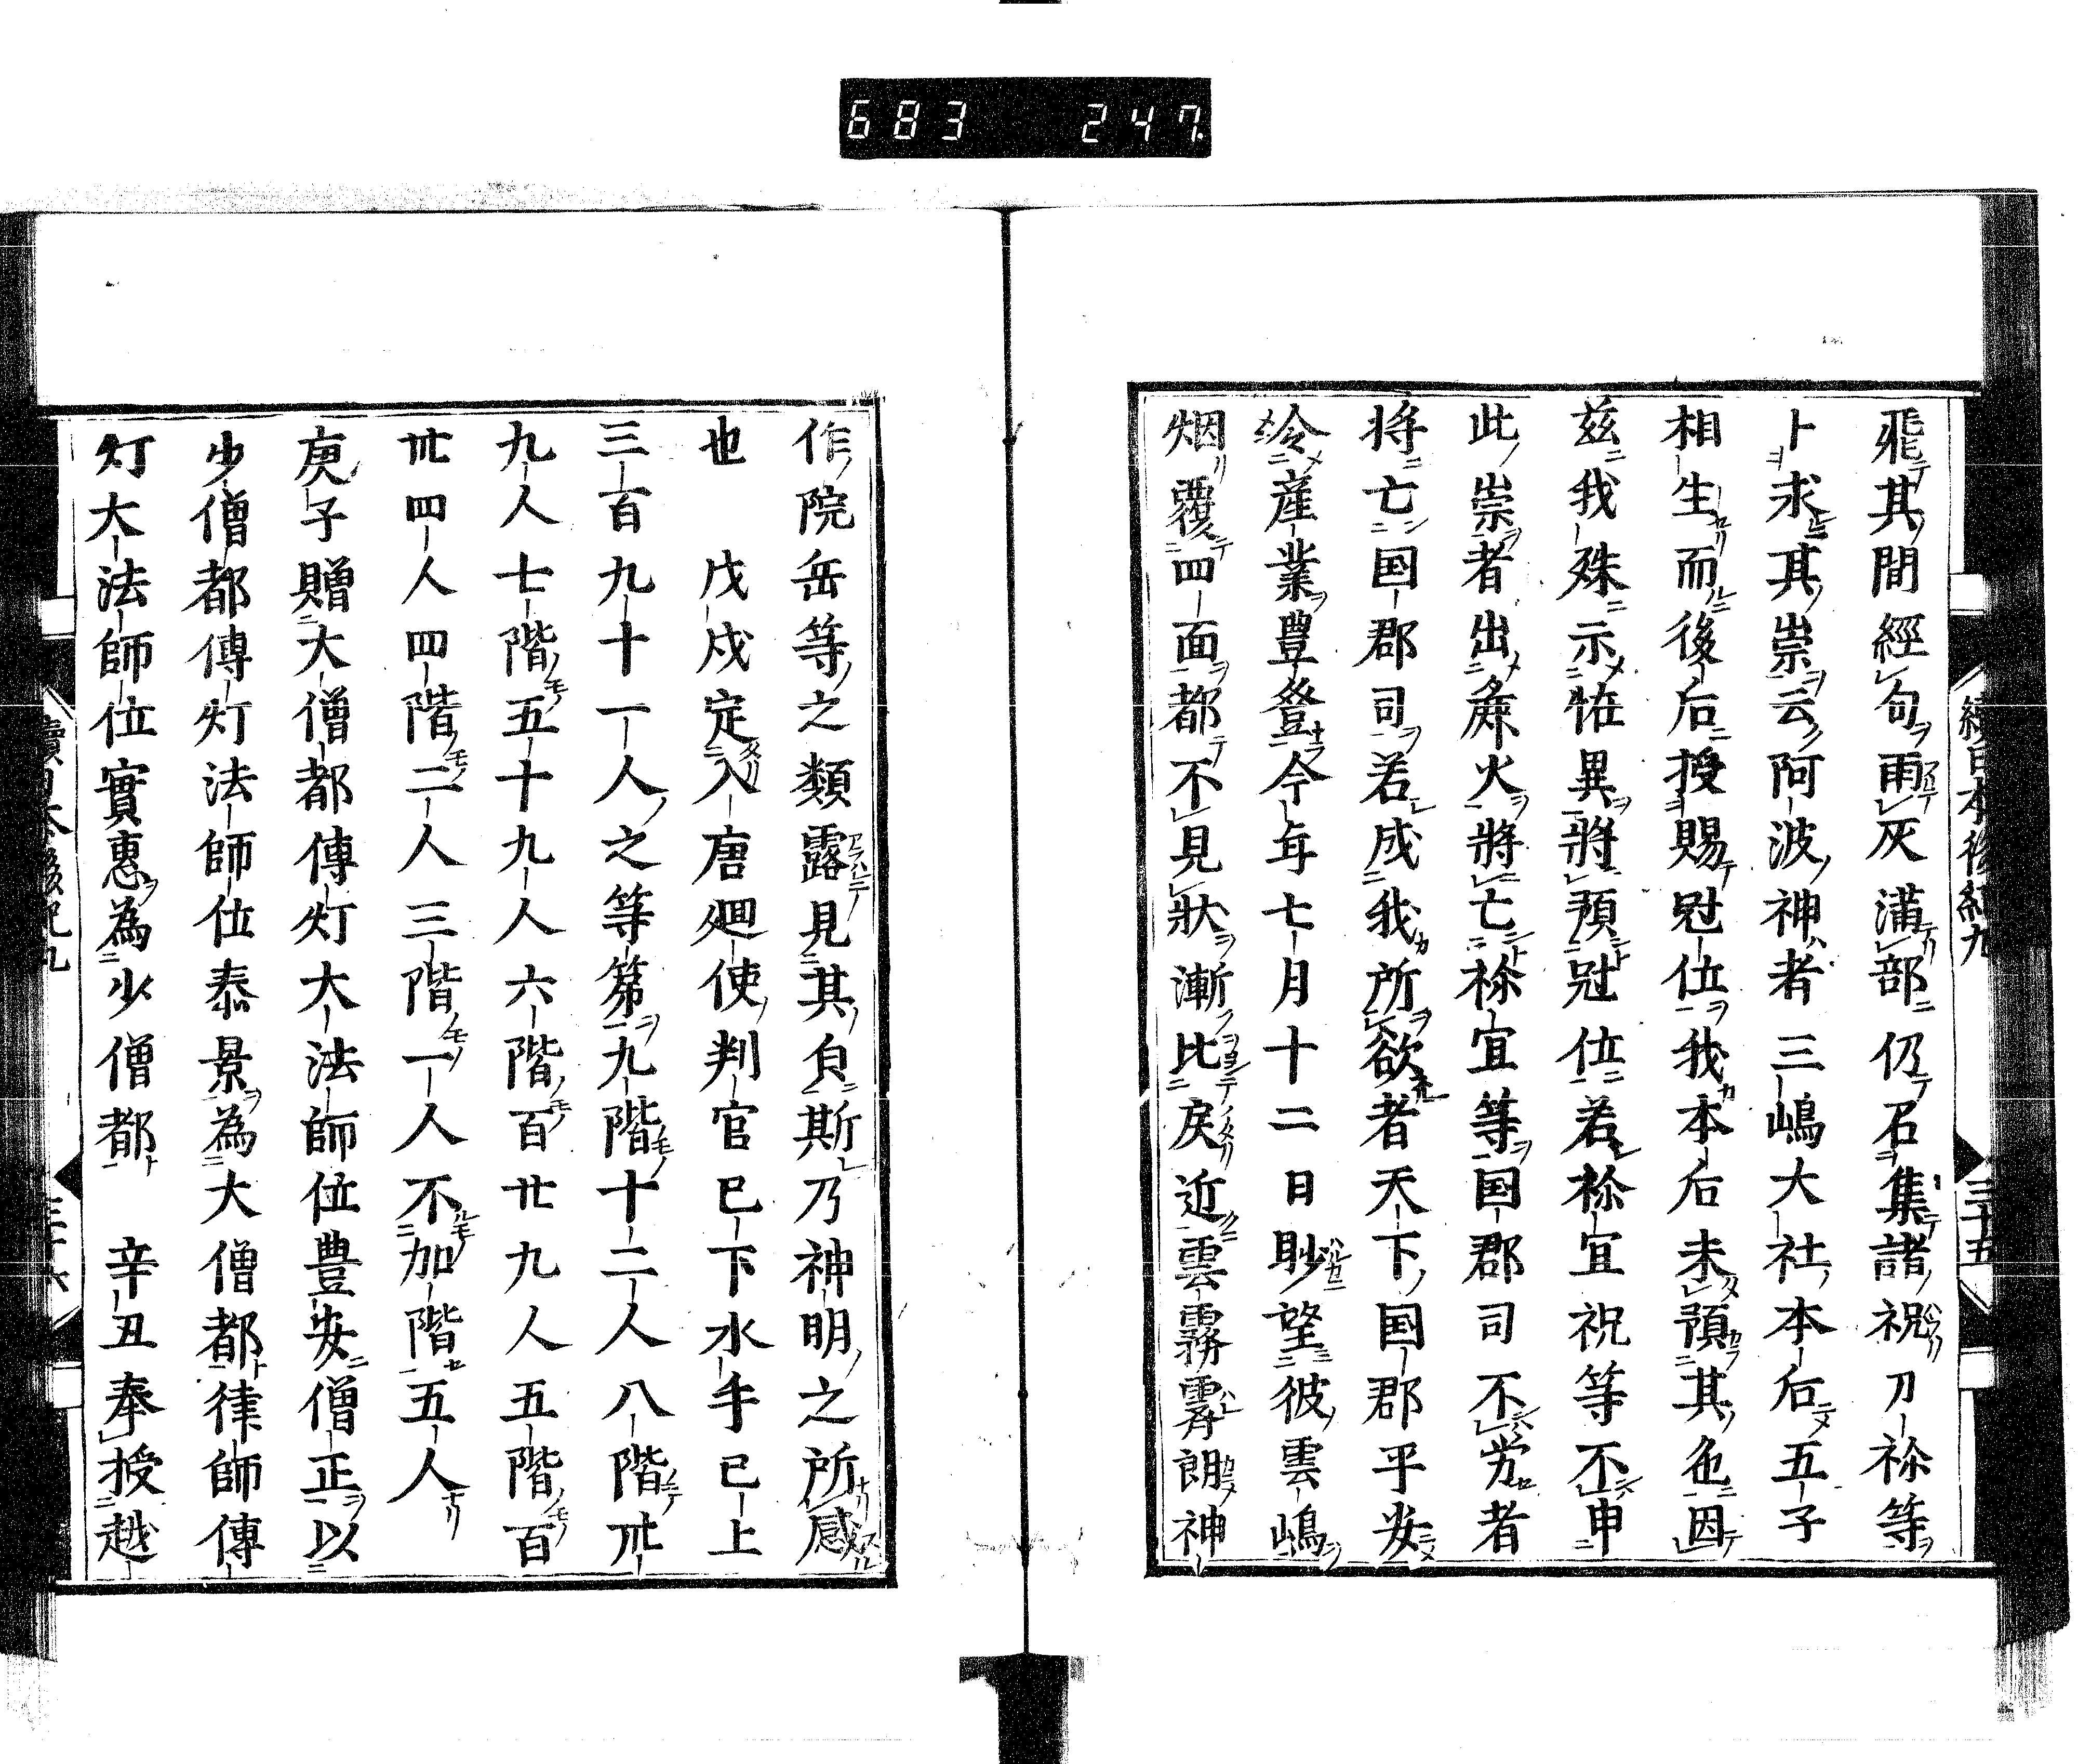 683 247
續日本後紀九
三十五
飛其間經句雨灰滿部仍召集諸祝刀祢等
卜求其祟云阿波神者三嶋大社本后五子
相生而後后授賜冠位我本后未預其色因
茲我殊示恠異將預冠位若祢宜祝等不申
此祟者出麁火將亡祢宜等国郡司不労者
将亡国郡司若成我所欲者天下国郡平安
令産業豊登今年七月十二日眇望彼雲嶋
烟覆四面都不見状漸比戻近雲霧霽朗神
作院岳等之類露見其貟斯乃神明之所感
也　戊戍定入唐廻使判官已下水手已上
三百九十一人之等第九階十二人八階卅
九人七階五十九人六階百廿九人五階百
卅四人四階二人三階一人不加階五人
庚子贈大僧都傳灯大法師位豊安僧正以
少僧都傳灯法師位泰景為大僧都律師傳
灯大法師位實惠為少僧都　辛丑奉授越
續日本後紀九
三十六